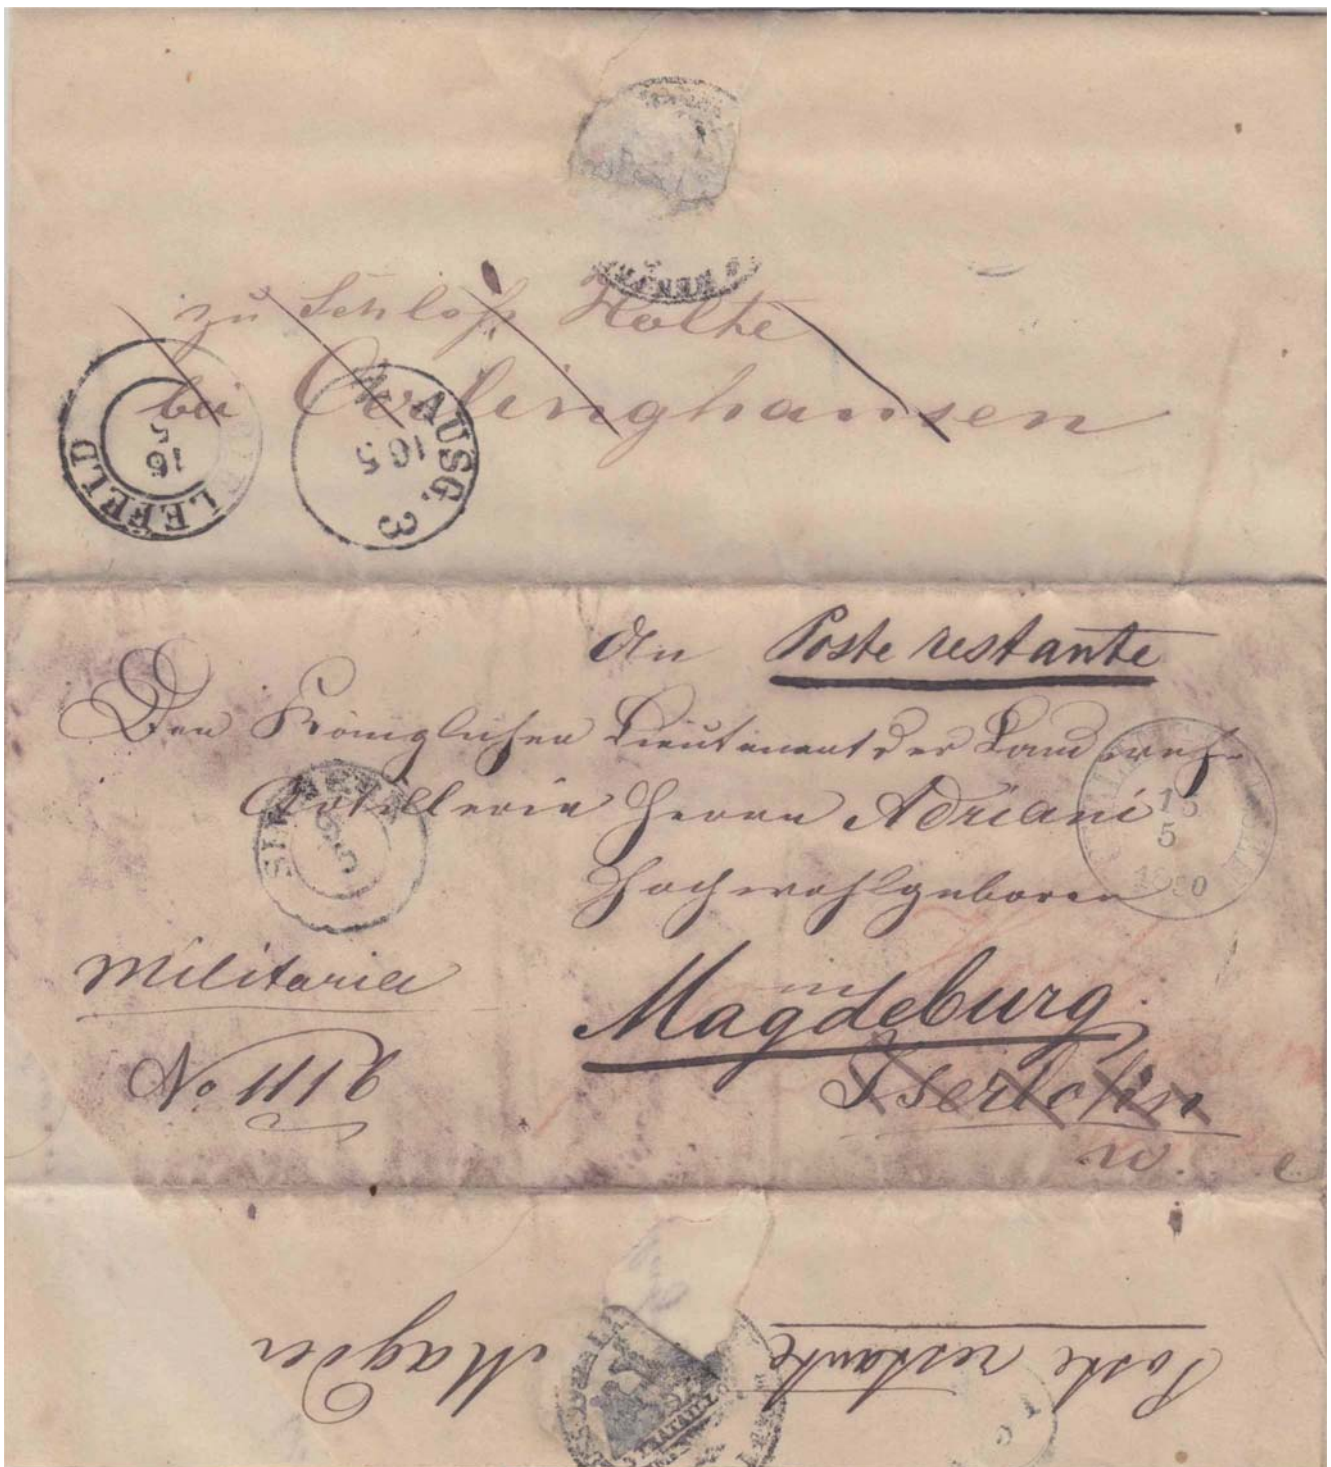 zu Schloß Holte
bei Oerlinghausen
BIELEFELD
16
5
AUSG. 3
16 5
An Poste restante
Den Königlichen Lieutenant der Landwehr
Artillerie Herrn Adriani
Hochwohlgeboren
15
5
in
Militaria
Magdeburg
No 1116
Iserlohn
w.
Poste restante
Magde
BATAILLON